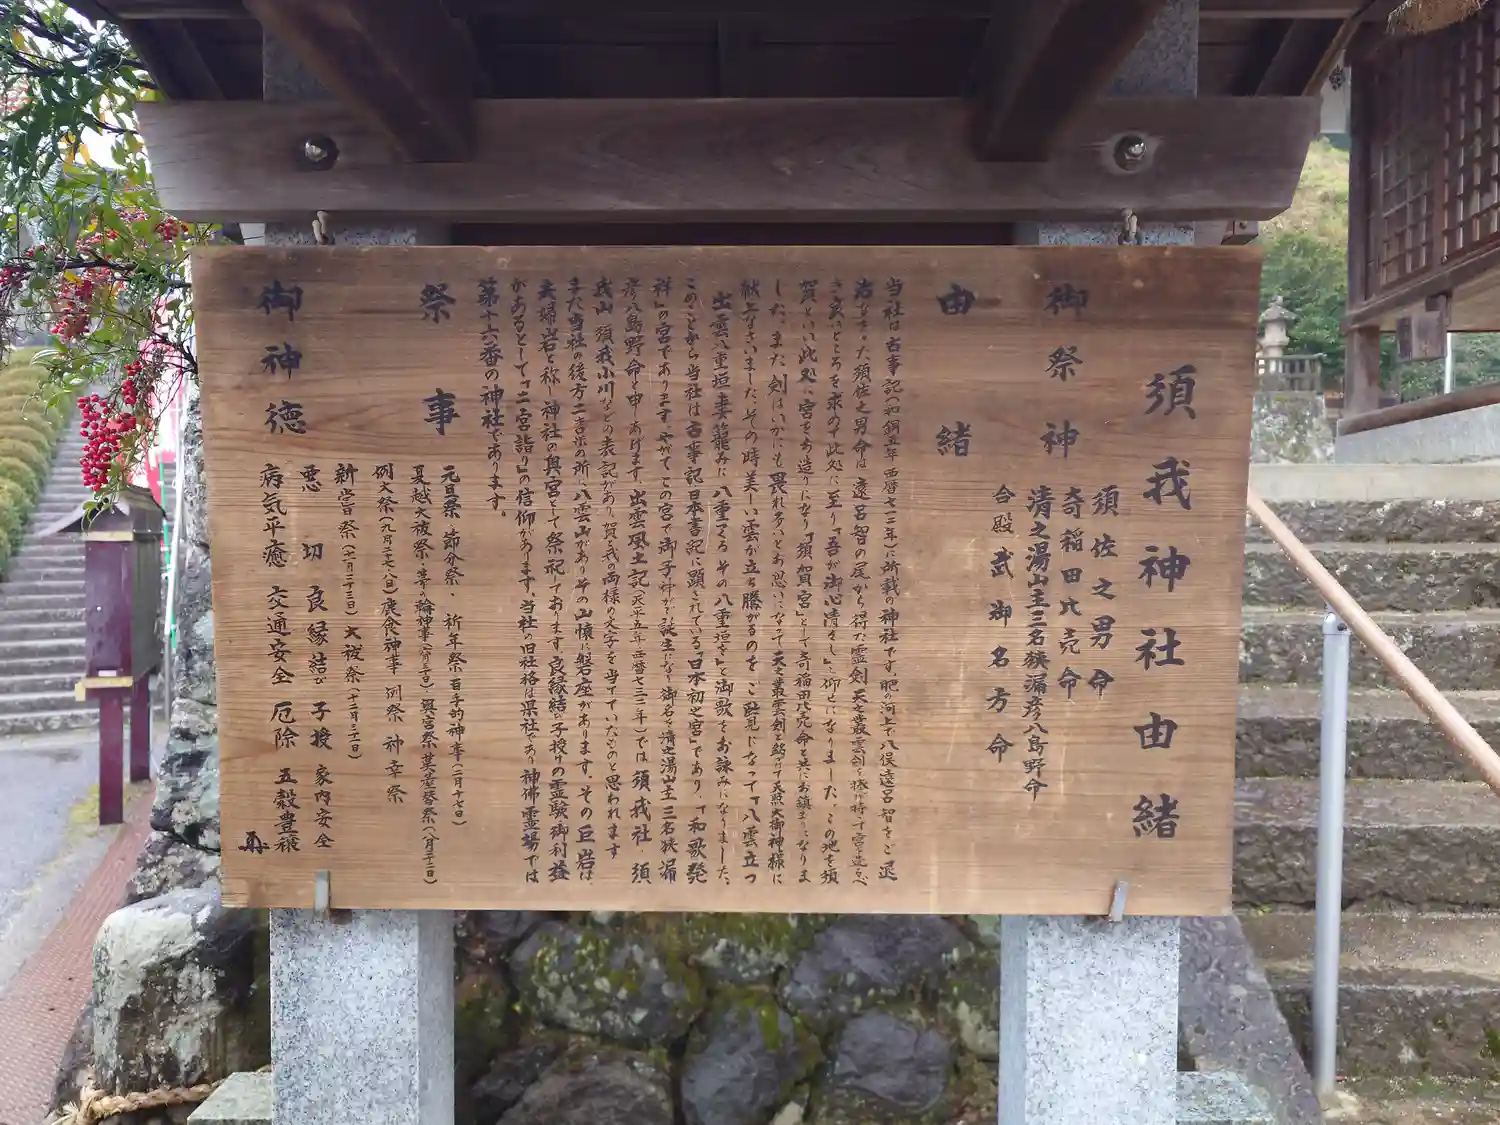 須我神社由緒
御祭神
須佐之男命
奇稲田比売命
清之湯山主三名狭漏彦八島野命
合殿 武御名方命
由緒
当社は古事記(和銅五年西暦七一二年)に所載の神社です。肥の河上で八俣遠呂智をご退
治なさった須佐之男命は、遠呂智の尾から得た霊剣天之叢雲剣を捧げ持って宮を造るべ
き良いところを求め此処に至り「吾が御心清々し」と仰せになりました。この地を須
賀といい此処に宮をお造りになり「須賀宮」として奇稲田比売命と共にお鎮まりになりま
した。また、剣はいかにも畏れ多いとお思いになって天之叢雲剣と銘けて天照大御神様に
献上なさいました。その時美しい雲が立ち騰がるのをご覧になって「八雲立つ
出雲八重垣妻籠みに八重つくるその八重垣を」と御歌をお詠みになりました。
このことから当社は古事記日本書紀に顕されている「日本初之宮」であり、「和歌発
祥」の宮であります。やがてこの宮で御子神がご誕生になり御名を清之湯山主三名狭漏
彦八島野命と申しあげます。出雲風土記(天平五年西暦七三三年)では須我社、須
我山、須我小川などの表記があり、賀と我の両様の文字を当てていたものと思われます
また当社の後方二粁米の所に八雲山がありその山懐に磐座があります。その巨岩は、
夫婦岩と称し神社の奥宮として祭祀しております。良縁結び子授けの霊験御利益
があるとして「二宮詣り」の信仰があります。当社の旧社格は県社であり神佛霊場では
第十六番の神社であります。
祭事
元旦祭・節分祭・祈年祭百手的神事(二月十七日)
夏越大祓祭・茅の輪神事(六月三十日) 奥宮祭 茣蓙替祭(八月二十二日)
例大祭(九月二十七、八日)鹿食神事 例祭 神幸祭
新嘗祭(十一月二十三日) 大祓祭(十二月三十一日)
御神徳
悪切 良縁結び 子授 家内安全
病気平癒 交通安全 厄除 五穀豊穣